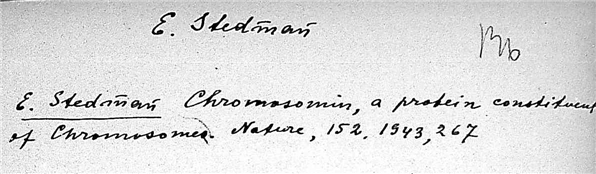 E. Stedman
E. Stedman Chromosomin, a protein constituent
of Chromosomes. Nature, 152, 1943, 267